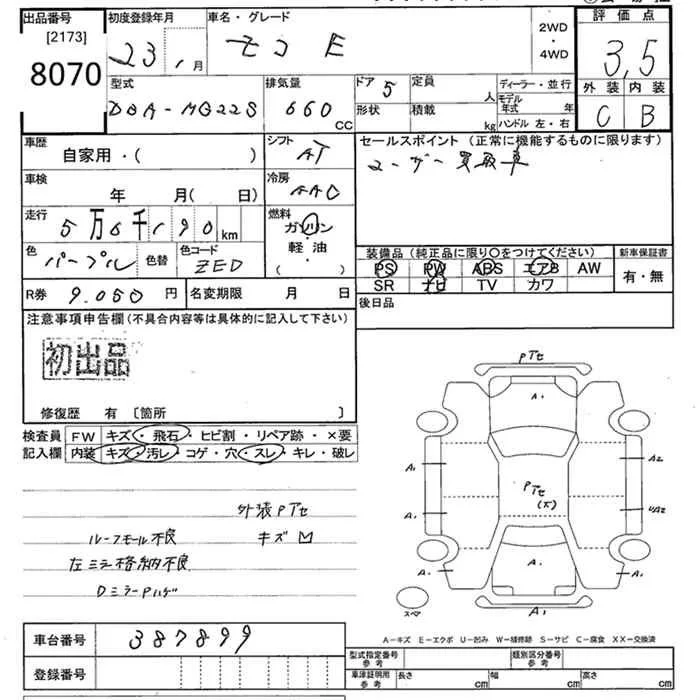 出品番号 初度登録年月 車名・グレード 2WD ・ 4WD 評価点
[2173]
8070 23年1月 モコ E 3.5
型式 排気量 ドア 5 定員 人 ディーラー・並行 外装 内装
DBA-MG22S 660 CC 形状 積載 kg モデル年式 年 C B
ハンドル 左・右
車歴 シフト セールスポイント(正常に機能するものに限ります)
自家用・( ) AT ユーザー買取車
車検 冷房
年 月(日) AAC
走行 燃料
5万6千190km ガソリン
色 色替 色コード 軽・油 装備品(純正品に限り〇をつけてください) 新車保証書
パープル ZED ( ) PS PW ABS エアB AW 有・無
R券 9.050円 名変期限 月 日 SR ナビ TV カワ
後日品
注意事項申告欄(不具合内容等は具体的に記入して下さい)
初出品
修復歴 有〔箇所 〕
検査員 FW キズ・飛石・ヒビ割・リペア跡・×要
記入欄 内装 キズ・汚レ・コゲ・穴・スレ・キレ・破レ
外装Pアセ
ルーフモール不良 キズ
左ミラー格納不良
DミラーPハゲ
Pアセ
A1
A1 A2
Pアセ
(大)
A1 UA2
A1
A1 A1
スペア A1
A-キズ E-エクボ U-凹み W-補修跡 S-サビ C-腐食 XX-交換済
車台番号 387899 型式指定番号 参考 類別区分番号 参考
登録番号 車庫証明用 参考 長さ cm 幅 cm 高さ cm